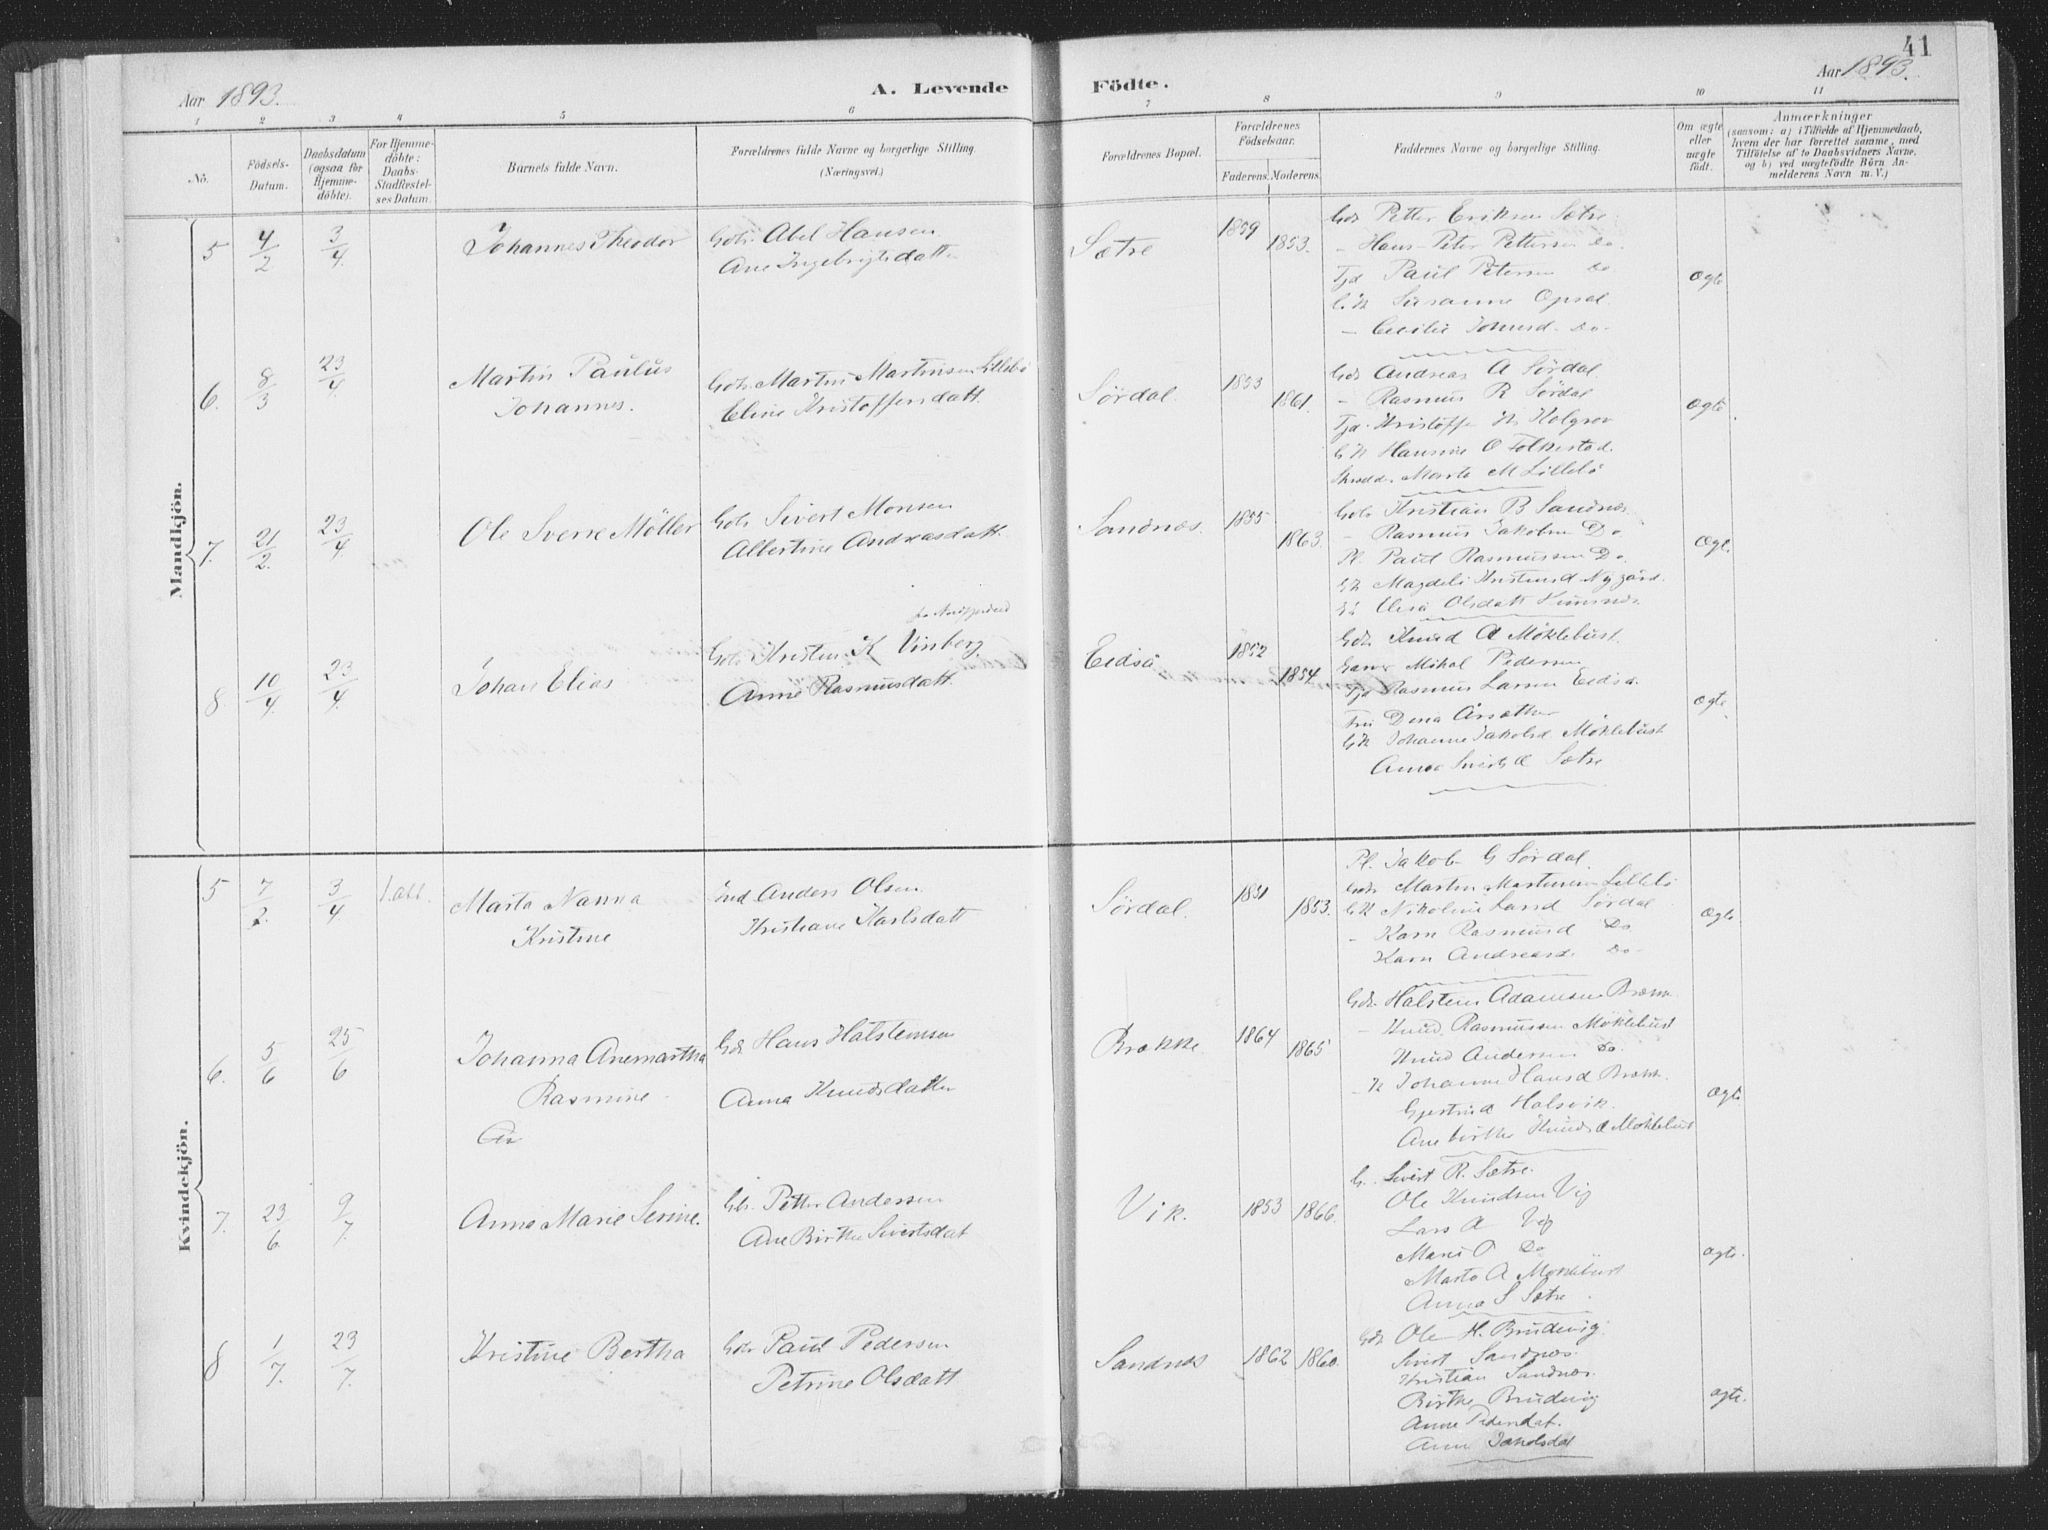 41
Aar 1893.
A. Levende
Födte.
Aar 1893.
1 2 3 4 5 6 7 8 9 10 11
No.
Födsels-
Datum.
Daabsdatum
(ogsaa for
Hjemme-
döbte).
For Hjemme-
döbte:
Daabs-
Stadfæstel-
ses Datum.
Barnets fulde Navn.
Forældrenes fulde Navne og borgerlige Stilling.
(Næringsvei.)
Forældrenes Bopæl.
Forældrenes
Födselsaar.
Faderens. Moderens.
Faddernes Navne og borgerlige Stilling.
Om ægte
eller
uægte
födt.
Anmærkninger
(saasom: a) i Tilfælde af Hjemmedaab,
hvem der har forrettet samme, med
Tilföielse af to Daabsvidners Navne,
og b) ved uægtefödte Börn An-
melderens Navn m. V.)
Mandkjön.
5 4/2 3/4 Johannes Theodor
Gbr. Abel Hansen
Ane Ingebrigtsdatter
Sætre 1859 1853.
Gbr Petter Eriksen Sætre
- Hans Peter Pettersen Do.
Tjd Paul Petersen Do
Susanne Opsal
- Cecilie Do-
ægte
6. 8/3 23/4 Martin Paulus
Johannes.
Gbr. Martin Martinsen Lillebö
Eline Kristoffersdatt.
Sördal. 1853 1861.
Gbr Andreas A Sördal
- Rasmus R Sördal
Tjd. Kristoffer Holgrov
Hansine O Folkestad.
Marte M Lillebö
ægte
7. 21/2. 23/4 Ole Sverre Möller
Gbr Sivert Monsen
Albertine Andreasdatt.
Sandnæs. 1855 1863.
Gbr Kristian B Sandnæs
- Rasmus Jakobsen Do
Pl. Paul Rasmussen Do.
Nygård.
Olsdatt
Ægte.
8. 10/4. 23/4. Johan Elias
fra Nordfjordeid
Gbr Kristen K Vinberg.
Anne Rasmusdatt.
Eidså 1852 1854.
Gbr. Knud A Möklebust.
Mikal Pedersen
Tjd Rasmus Larsen Eidså.
Dina Årsæther
Johanne Jakobsd Möklebust
Anna Sivertsd Sætre
ægte
Kvindekjön.
5 7/2. 3/4 Marta Nanna
Kristine
Ind Anders Olsen
Kristiane Karlsdatt
Sördal. 1851 1853.
Pl. Jakob G Sördal.
Gbr Martin Martinsen Lillebö
Nikoline Larsd Sördal
- Karn Rasmusd Do
Karn Andreasd. Do-
ægte
6. 5/6 25/6 Johanna Anemartha
Rasmine
An
Gbr Hans Halstensen
Anna Knudsdatter
Brække 1864 1865
Gbr. Halsten Adamsen Brække
- Knud Rasmussen Möklebust
Knud Andersen Do.
- K Johanne Hansd Brække
Gjertrud Halsvik.
Ane Birthe Knudsd Möklebust
ægte
7. 23/6. 9/7. Anne Marie Serine.
Gbr. Petter Andersen
Ane Birthe Sivertsdat
Vik. 1853 1866.
G. Sivert R. Sætre.
Ole Knudsen Vig
Lars A Vig
Marie O Do
Marte A Möklebust
Anna S Sætre.
ægte.
8 1/7. 23/7. Kristine Bertha
Gbr Paul Pedersen
Petrine Olsdatt
Sandnæs 1862 1860.
Gbr Ole H. Brudevig
Sivert Sandnæs.
Kristian Sandnæs.
Birthe Brudevig
Anne Pedersdat.
Anne Jakobsdat
ægte.